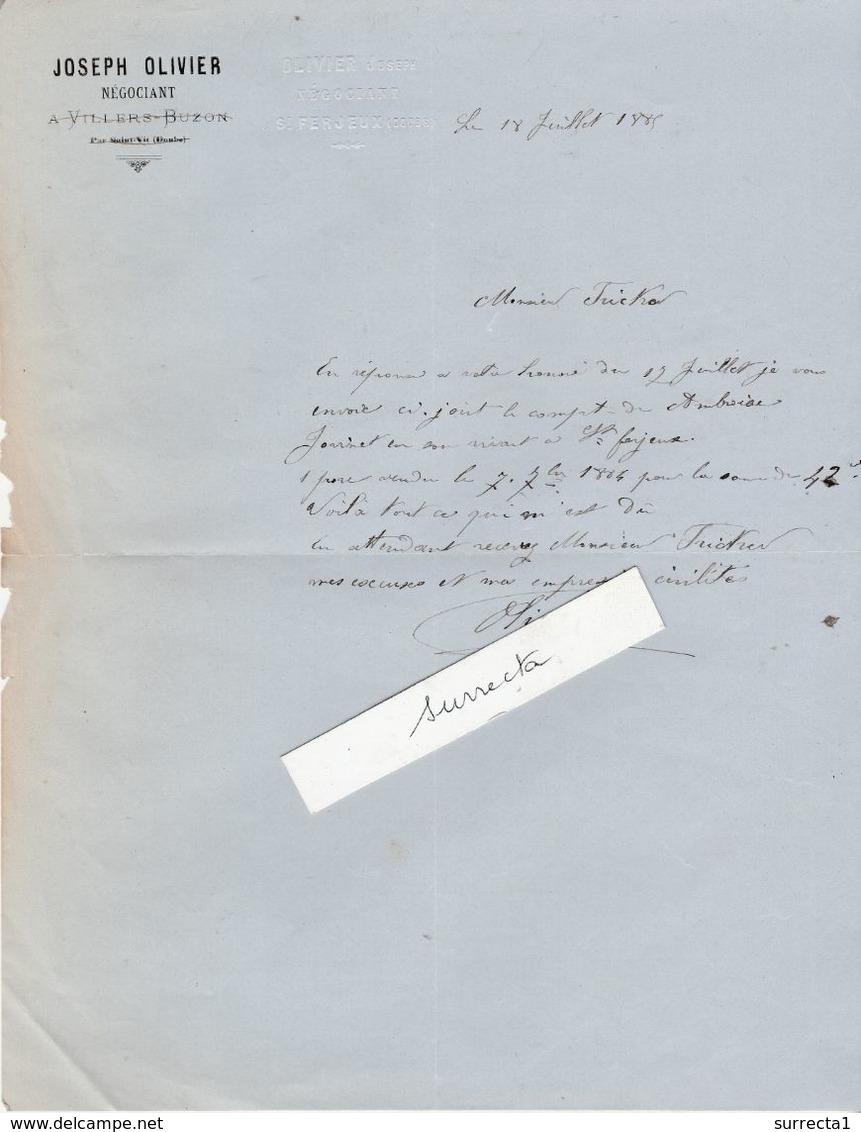 JOSEPH OLIVIER
NÉGOCIANT
A VILLERS-BUZON
Par Saint-Vit (Doubs)
OLIVIER JOSEPH
NÉGOCIANT
ST FERJEUX (DOUBS)
Le 18 Juillet 1885
Monsieur Fricker
En réponse a votre honoré du 17 Juillet je vous
envoie ci-joint le compte de Ambroise
en son vivant a St ferjeux.
1 porc vendu le 7. 7bre 1884 pour la some de 42
Voilà tout ce qui m'est dû
En attendant recevez Monsieur Fricker
mes excuses et ma civilités
surrecta
www.delcampe.net
surrecta1